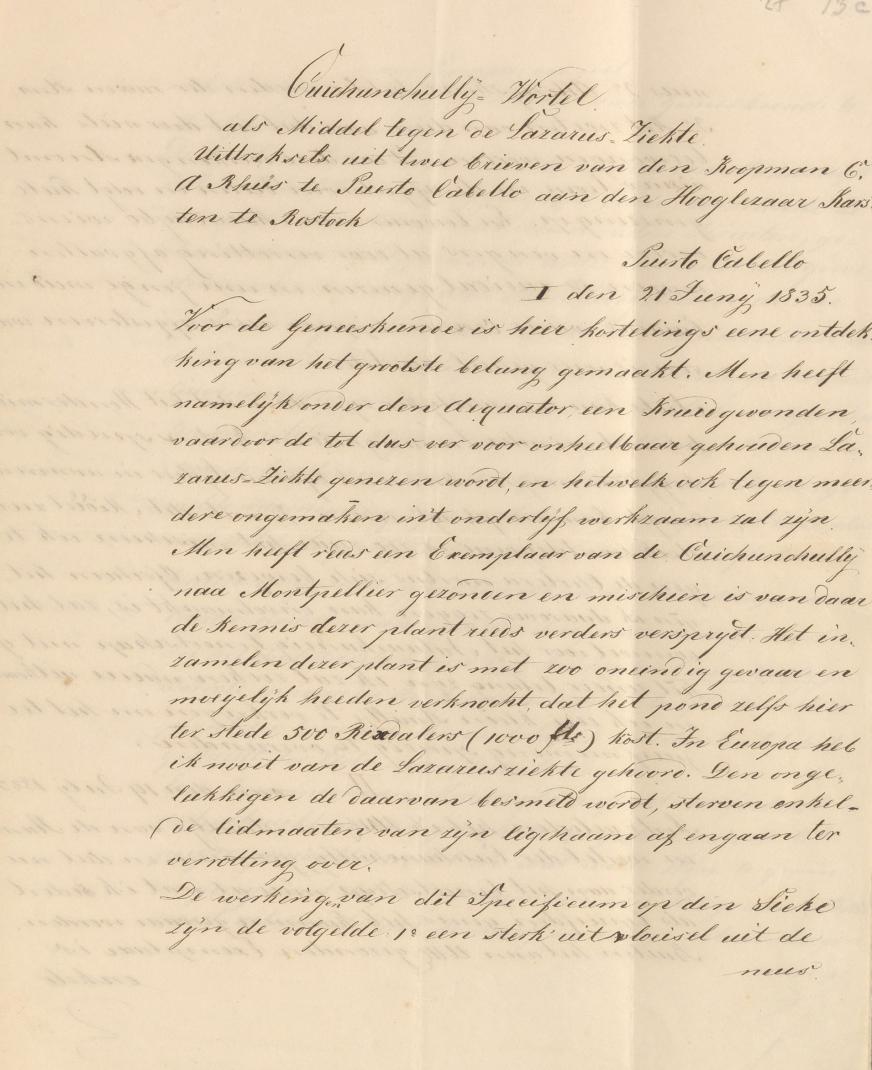 Cuichunchullÿ-Wortel
als Middel tegen de Lazarus-Ziekte.
Uittreksels uit twee brieven van den Koopman C.
A Rhüs te Puerto Cabello aan den Hooglezaar Kars-
ten te Rostock
Puerto Cabello
I den 21 Junÿ 1835.
Voor de Geneeskunde is hier kortelings eene ontdek-
king van het grootste belang gemaakt. Men heeft
namelÿk onder den Aequator, een Kruid gevonden,
vaardoor de tot dus ver voor onheelbaar gehouden La-
zarus-Ziekte genezen wordt, en hetwelk ook tegen meer-
dere ongemaken in't onderlÿf werkzaam zal zÿn.
Men heeft reeds een Exemplaar van de Cuichunchullÿ
naa Montpellier gezonden en mischien is van daar
de Kennis dezer plant reeds verders versprÿdt. Het in-
zamelen dezer plant is met zoo oneindig gevaar en
moeÿelÿkheeden verknocht, dat het pond zelfs hier
ter stede 500 Rixdalers (1000 fls) kost. In Europa heb
ik nooit van de Lazarusziekte gehoord. Den onge-
lukkigen de daarvan besmeld wordt, sterven enkel-
de lidmaaten van zÿn ligchaam af en gaan ter
verrotting over.
De werkingen van dit Specificum op den Sieke
zÿn de volgelde. 1° een sterk uitvloeisel uit de
neus.